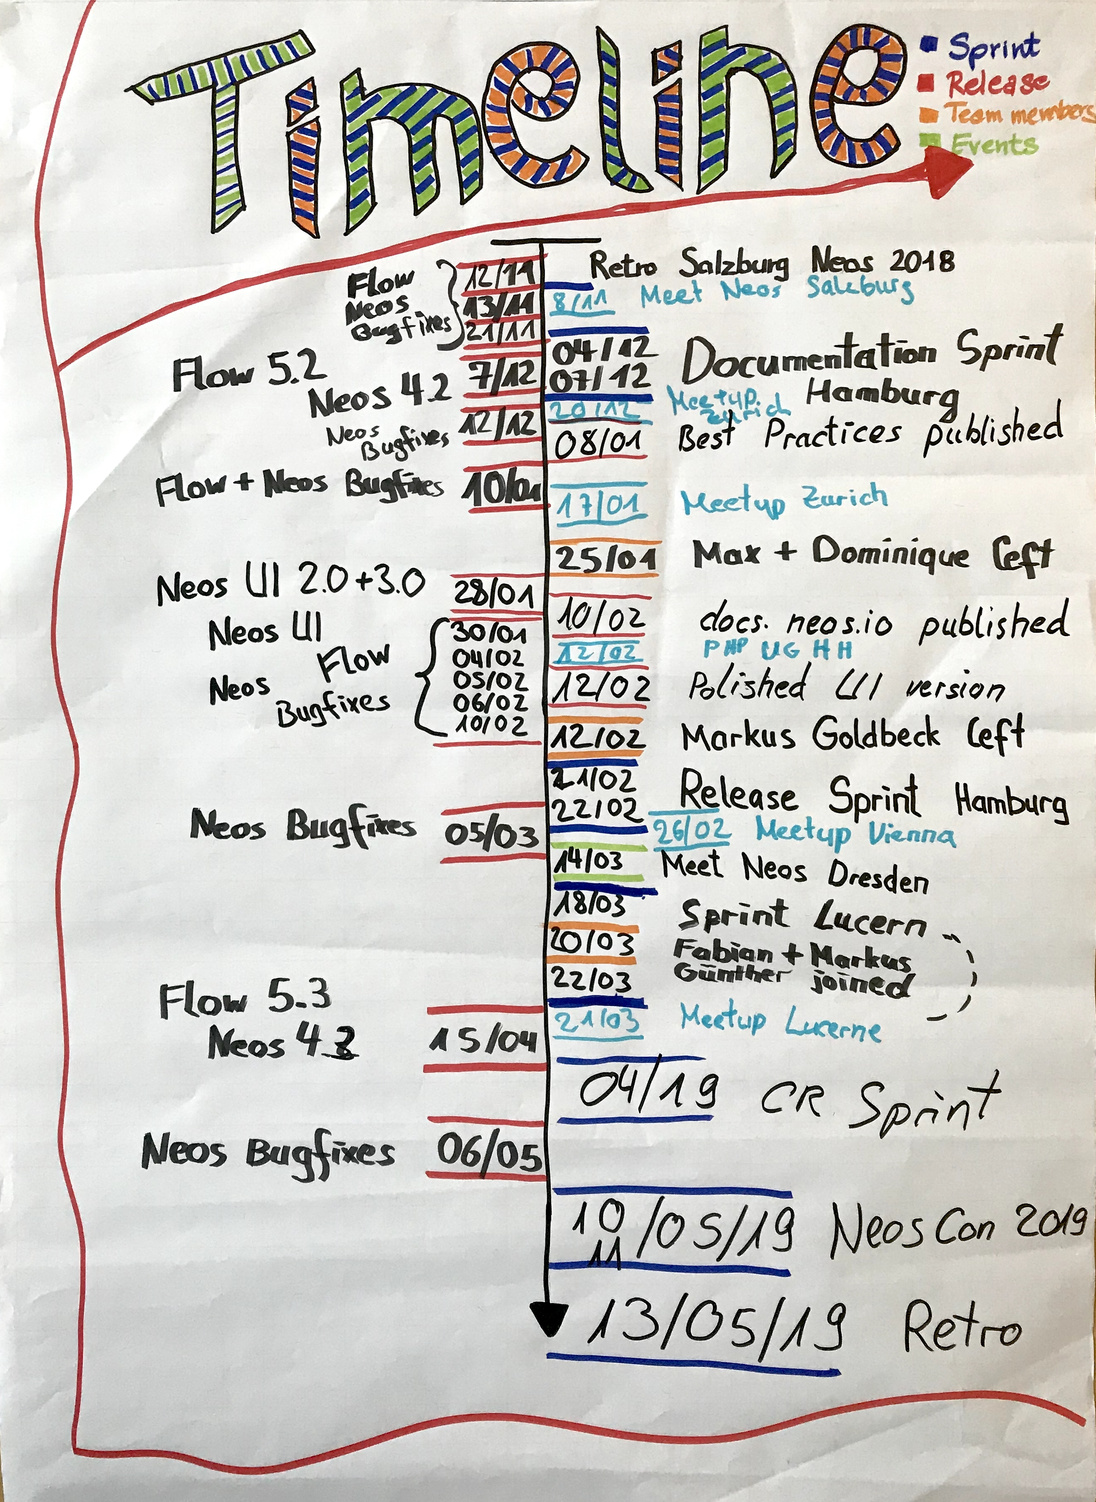 Timeline
Sprint
Release
Team members
Events
Retro Salzburg Neos 2018
Flow
Neos
Bugfixes
12/11
13/11
21/11
8/11 Meet Neos Salzburg
Flow 5.2
Neos 4.2
7/12
04/12
07/12
Documentation Sprint
Hamburg
20/12 Meetup Zurich
Neos
Bugfixes
12/12
08/01 Best Practices published
Flow + Neos Bugfixes 10/01
17/01 Meetup Zurich
25/01 Max + Dominique left
Neos UI 2.0+3.0 28/01
10/02 docs.neos.io published
Neos UI
Flow
Neos
Bugfixes
30/01
04/02
05/02
06/02
10/02
12/02 PHP UG HH
12/02 Polished UI version
12/02 Markus Goldbeck left
21/02
22/02
Release Sprint Hamburg
Neos Bugfixes 05/03
26/02 Meetup Vienna
14/03 Meet Neos Dresden
18/03 Sprint Lucern
20/03 Fabian + Markus
Günther joined
22/03
21/03 Meetup Lucerne
Flow 5.3
Neos 4.3
15/04
04/19 CR Sprint
Neos Bugfixes 06/05
10
11
/05/19 NeosCon 2019
13/05/19 Retro